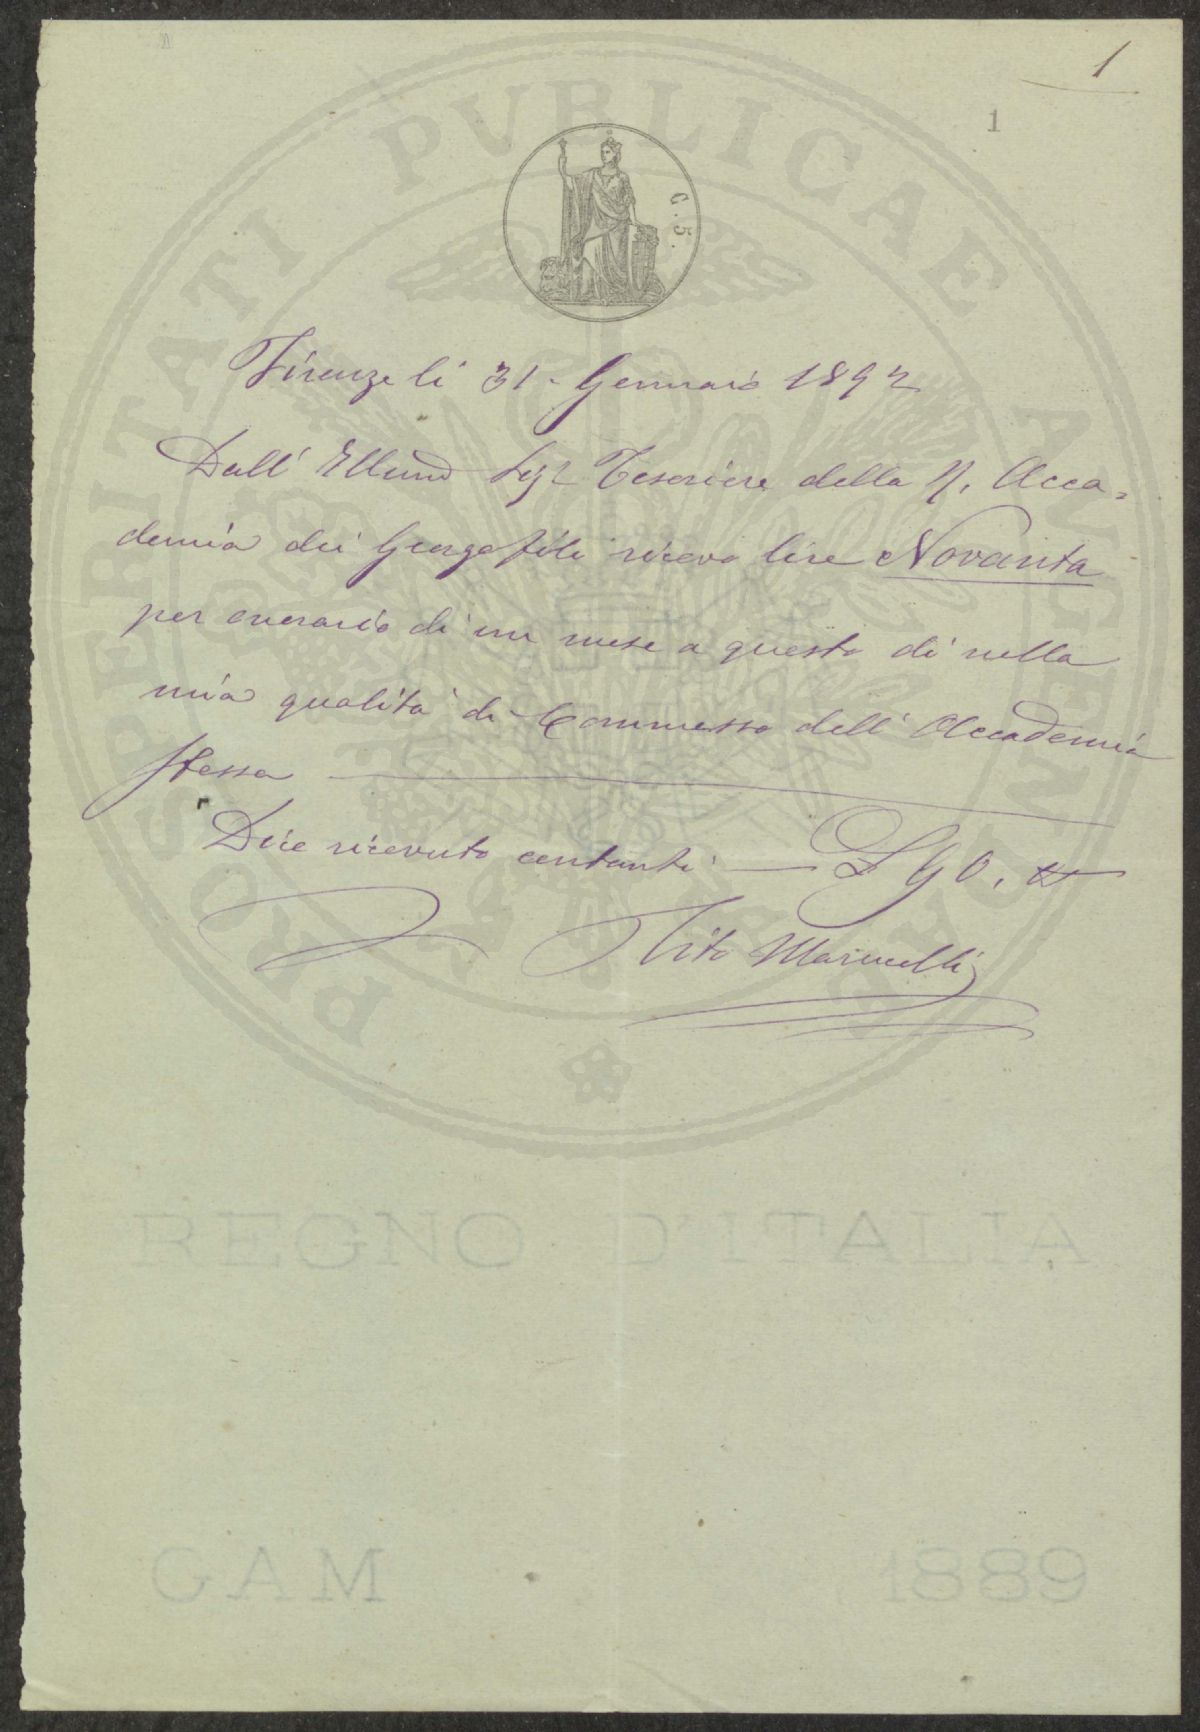 1
1
PROSPERITATI PVBLICAE AVGENDAE
G. 5.
Firenze li 31 - Gennaio 1892
Dall' Illmo Sigr Tesoriere della R. Acca=
demia dei Georgofili ricevo lire Novanta
per onorario di un mese a questo dì nella
mia qualità di Commesso dell' Accademia
stessa
Dico ricevuto contanti L 90.
Tito Marucelli
REGNO D'ITALIA
GAM 1889